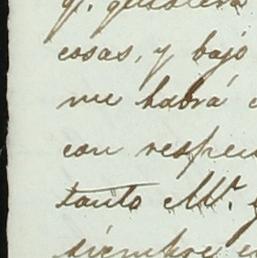 q. quisiera
cosas, y bajo
me habrá
con respec
tanto M.
siempre